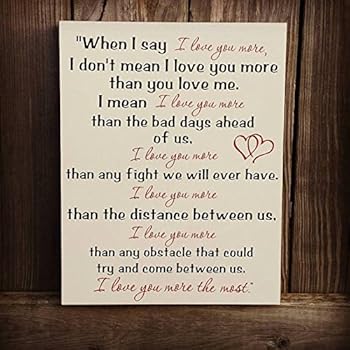 "When I say I love you more,
I don't mean I love you more
than you love me.
I mean I love you more
than the bad days ahead
of us.
I love you more
than any fight we will ever have.
I love you more
than the distance between us.
I love you more
than any obstacle that could
try and come between us.
I love you more the most."